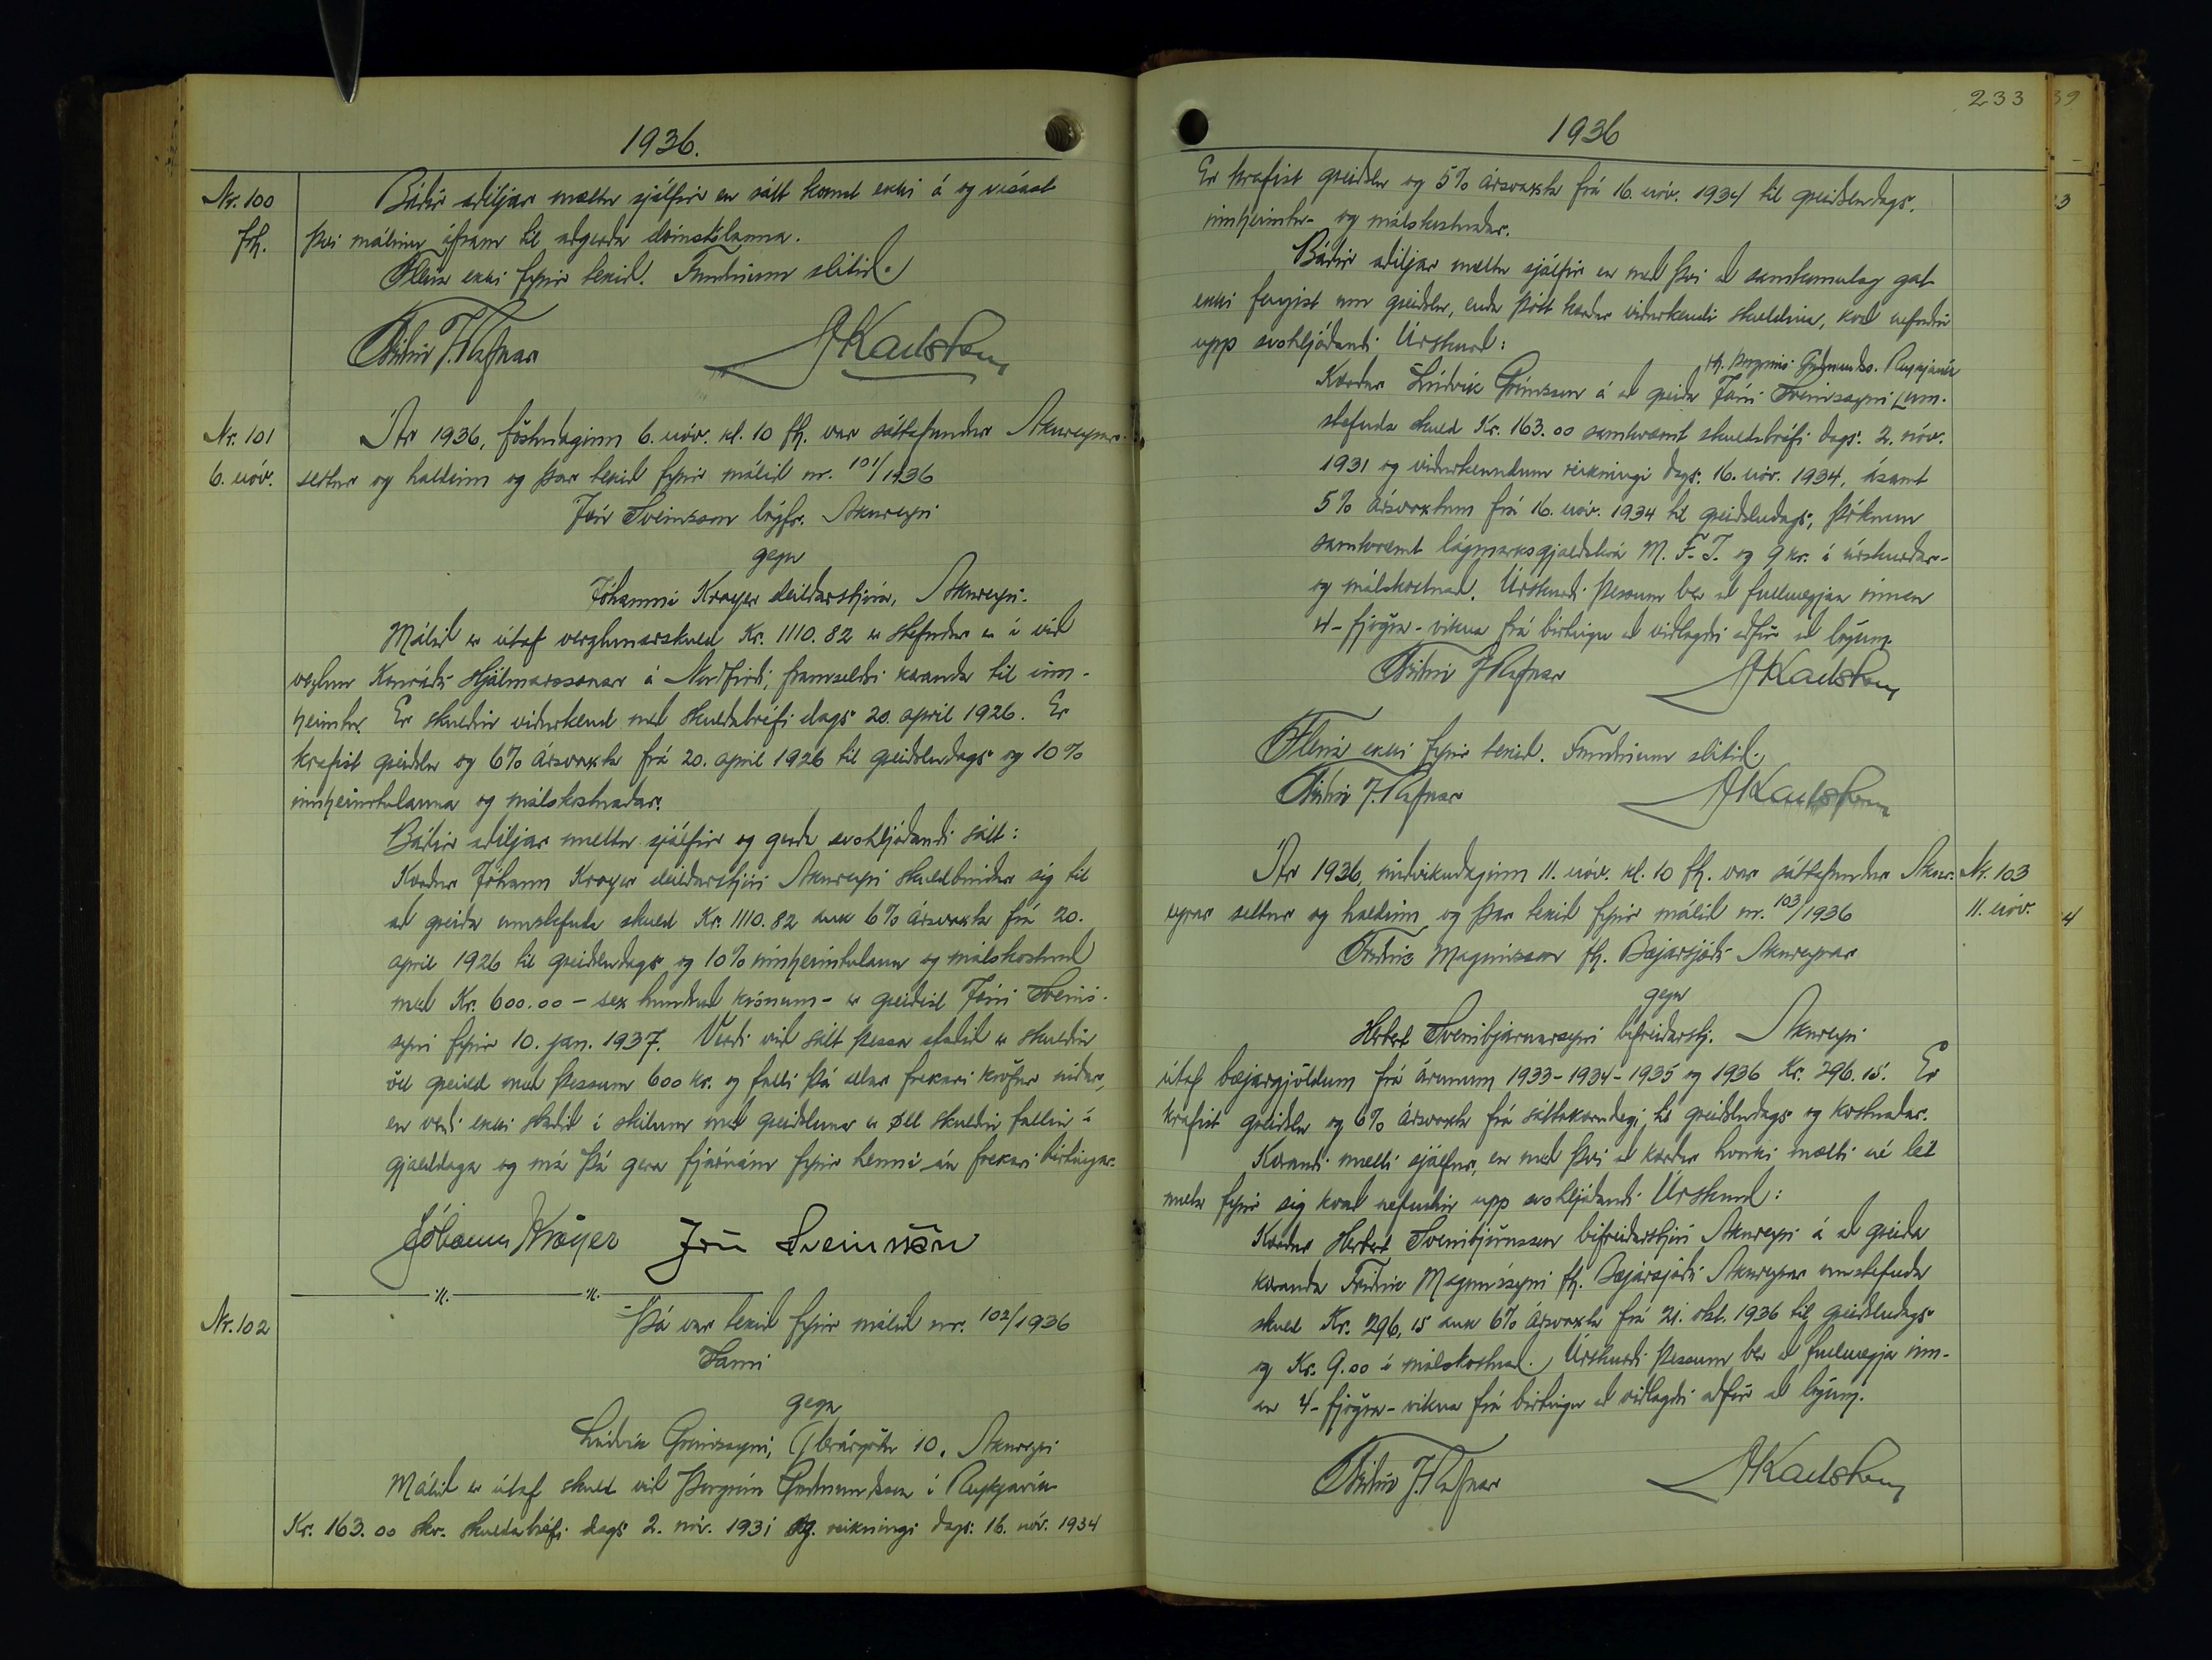 1936.
Nr. 100
frh.
Báðir aðiljar mættu sjálfir en sátt komst ekki á og vísast
því málinu áfram til aðgerða dómstólanna.
Fleira ekki fyrir tekið. Fundinum slitið.
Friðrik J. Rafnar
JKarlsson
Nr. 101
6. nóv.
Ár 1936, föstudaginn 6. nóv. kl. 10 fh. var sáttafundur Akureyrar
settur og haldinn og þar tekið fyrir málið nr. 101/1936
Jón Sveinsson lögfr. Akureyri
gegn
Jóhanni Kröyer deildarstjóra, Akureyri.
Málið er útaf verzlunarskuld Kr. 1110.82 er stefndur er í við
verzlun Konráðs Hjálmarssonar á Norðfirði, framseldri kæranda til inn-
heimtu. Er skuldin viðurkend með skuldabréfi dags. 20. apríl 1926. Er
krafist greiðslu og 6% ársvaxta frá 20. apríl 1926 til greiðsludags og 10%
innheimtulauna og málskostnaðar.
Báðir aðiljar mættu sjálfir og gerðu svohljóðandi sátt:
Kærður Jóhann Kröyer deildarstjóri Akureyri skuldbindur sig til
að greiða umstefnda skuld Kr. 1110.82 auk 6% ársvaxta frá 20.
apríl 1926 til greiðsludags og 10% innheimtulaun og málskostnað
með Kr. 600.00 - sex hundruð krónum - er greiðist Jóni Sveins-
syni fyrir 10. jan. 1937. Verði við sátt þessa staðið er skuldin
öll greidd með þessum 600 kr. og falli þá allar frekari kröfur niður,
en verði ekki staðið í skilum með greiðsluna er öll skuldin fallin í
gjalddaga og má þá gera fjárnám fyrir henni án frekari birtingar.
Jóhann Kröyer Jón Sveinsson
Nr. 102
Þá var tekið fyrir málið nr. 102/1936
Sami
gegn
Lúðvík Grímssyni, Glerárgötu 10. Akureyri
Málið er útaf skuld við Þorgrím Guðmundsson í Reykjavík
Kr. 163.00 skv. skuldabréfi dags 2. nóv. 1931 og reikningi dags: 16. nóv. 1934
233
39
1936
Er krafist greiðslu og 5% ársvaxta frá 16. nóv. 1934 til greiðsludags.
innheimtu- og málskostnaðar.
Báðir aðiljar mættu sjálfir en með því að samkomulag gat
ekki fengist um greiðslu, enda þótt kærður viðurkendi skuldina, kvað nefndin
upp svohljóðandi Úrskurð:
fh. Þorgríms Guðmundss. Reykjavík
Kærður Lúðvík Grímsson á að greiða Jóni Sveinssyni um-
stefnda skuld Kr. 163.00 samkvæmt skuldabréfi dags. 2. nóv.
1931 og viðurkenndum reikningi dags. 16. nóv. 1934, ásamt
5% ársvöxtum frá 16. nóv. 1934 til greiðsludags, þóknun
samkvæmt lágmarksgjaldskrá M. F. I. og 9 kr. í úrskurðar-
og málskostnað. Úrskurði þessum ber að fullnægja innan
4- fjögra - vikna frá birtingu að viðlagðri aðför að lögum.
Friðrik J Rafnar
JKarlsson
Fleira ekki fyrir tekið. Fundinum slitið.
Friðrik J. Rafnar
JKarlsson
Nr. 103
11. nóv.
Ár 1936, miðvikudaginn 11. nóv. kl. 10 fh. var sáttafundur Akur-
eyrar settur og haldinn og þar tekið fyrir málið nr. 103/1936
Friðrik Magnússon fh. Bæjarsjóðs Akureyrar
gegn
Herbert Sveinbjörnssyni bifreiðarstj. Akureyri
útaf bæjargjöldum frá árunum 1933-1934-1935 og 1936 Kr. 296.15. Er
krafist greiðslu og 6% ársvaxta frá sáttakærudegi til greiðsludags og kostnaðar.
Kærandi mætti sjálfur, en með því að kærður hvorki mætti né lét
mæta fyrir sig kvað nefndin upp svohljóðandi Úrskurð:
Kærður Herbert Sveinbjörnsson bifreiðarstjóri Akureyri á að greiða
kæranda Friðrik Magnússyni fh. Bæjarsjóðs Akureyrar umstefnda
skuld Kr. 296,15 auk 6% ársvaxta frá 21. okt. 1936 til greiðsludags
og Kr. 9.00 í málskostnað. Úrskurði þessum ber að fullnægja inn-
an 4- fjögra - vikna frá birtingu að viðlagðri aðför að lögum.
Friðrik J. Rafnar
JKarlsson